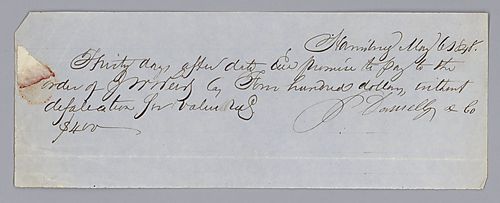 May 6 1848.
Thirty days after date we promise to pay to the
order of J W & Co Four hundred dollars, without
defalcation for value recd
$400 P Donnelly & Co